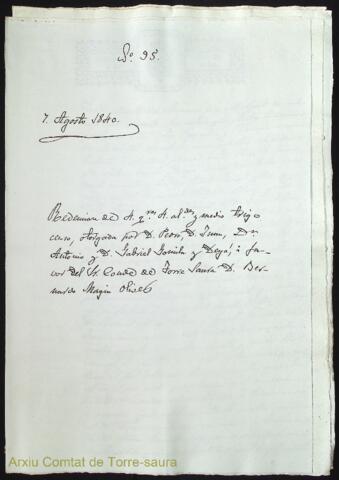 Nº 95.
7. Agosto 1840.
Redencion de 4. qras 4. al.des y medio trigo
censo, otorgada por D. Pedro, D. Juan, Dn.
Antonio y D. Gabriel Gornila y Deyá, á fa-
vor del Sr. Conde de Torre Saura D. Ber-
nardo Magin Olives
Arxiu Comtat de Torre-saura